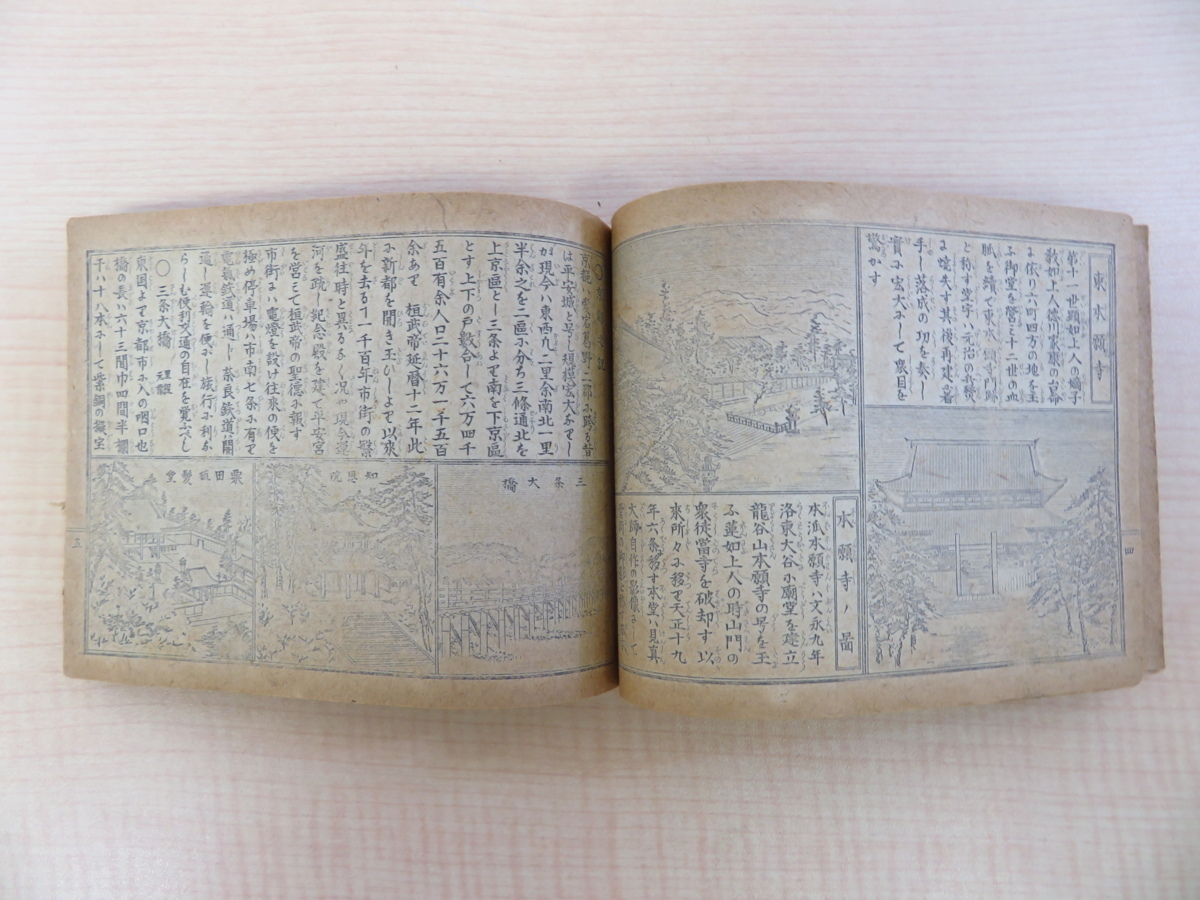 東本願寺
第十一世顕如上人の嫡子
教如上人徳川家康の台命
に依り六町四方の地を玉
ふ御堂を営む十二世の血
脈を続て東本願寺門跡
と称す堂宇ハ元治の兵燹
に焼失す其後再建に着
手し落成の功を奏し
實に宏大にして衆目を
驚かす
本願寺ノ啚
本派本願寺ハ文永九年
洛東大谷に廟堂を建立
龍谷山本願寺の号を玉
ふ蓮如上人の時山門の
衆徒當寺を破却す以
来所々に移て天正十九
年六条に移す本堂ハ見真
大師自作の影像にして
は平安城と号し規模宏大なりし
が現今ハ東西凡二里余南北一里
半余之を二區に分ち三條通北を
上京區とし三条より南を下京區
とす上下の戸数合して六万四千
五百有余人口二十六万一千五百
余あり 桓武帝延暦十二年此
に新都を開き玉ひしより以来
年を去るヿ一千百年市街の繁
盛往時と異るなく况や現今疏
河を疏し紀念殿を建て平安宮
を営みて桓武帝の聖徳に報す
市街にハ電燈を設け往来の便を
極め停車場ハ市南七条に有て
電氣鉄道ハ通し奈良鉄道ハ開
通し運輪を便にし旅行に利な
らしむ便利交通の自在を覚ふべし
〇 三条大橋 理程
衆国よりて京都市に入の咽口也
橋の長ハ六十三間巾四間半欄
干ハ十八本にして紫銅の擬宝
三条大橋
知恩院
粟田坂髪堂
四
五